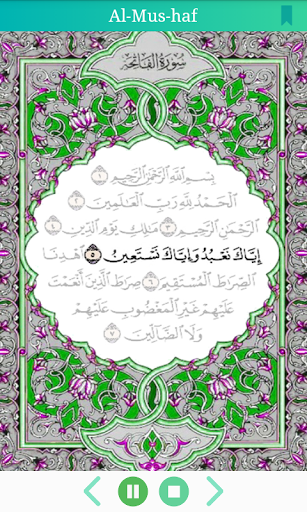 Al-Mus-haf
سورة الفاتحة
بِسْمِ ٱللَّهِ ٱلرَّحْمَٰنِ ٱلرَّحِيمِ ١
ٱلْحَمْدُ لِلَّهِ رَبِّ ٱلْعَٰلَمِينَ ٢
ٱلرَّحْمَٰنِ ٱلرَّحِيمِ ٣ مَٰلِكِ يَوْمِ ٱلدِّينِ ٤
إِيَّاكَ نَعْبُدُ وَإِيَّاكَ نَسْتَعِينُ ٥ ٱهْدِنَا
ٱلصِّرَٰطَ ٱلْمُسْتَقِيمَ ٦ صِرَٰطَ ٱلَّذِينَ أَنْعَمْتَ
عَلَيْهِمْ غَيْرِ ٱلْمَغْضُوبِ عَلَيْهِمْ
وَلَا ٱلضَّآلِّينَ ٧